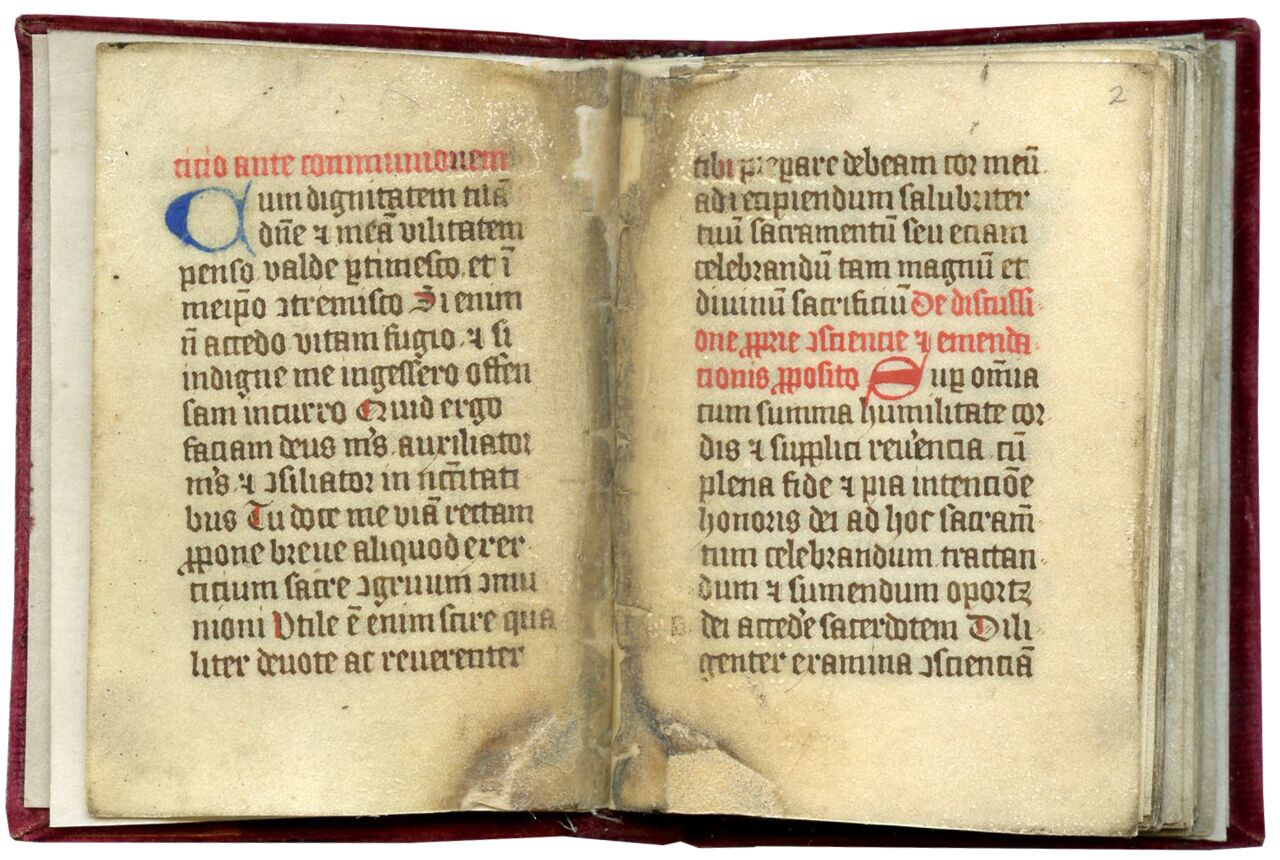 citio ante communionem
Cum dignitatem tuā
dn̄e ⁊ meā vilitatem
penso valde ꝑtimesco et ī
meip̄o ↄtremisco Si enim
n̄ accedo vitam fugio ⁊ si
indigne me ingessero offen
sam incurro Quid ergo
faciam deus m̄s auxiliator
m̄s ⁊ ↄsiliator in nc̄citati
bus Tu doce me viā rectam
ꝓpone breue aliquod exer
citium sacre ↄgruum ↄmu
nioni Vtile ē enim scire qua
liter deuote ac reuerenter
2
tibi p̄parare debeam cor meū
ad recipiendum salubriter
tuū sacramentū seu eciam
celebrandū tam magnū et
diuinū sacrificiū De discussi
one ꝓprie ↄsciencie ⁊ emenda
cionis ꝓposito Suꝑ om̄ia
cum summa humilitate cor
dis ⁊ supplici reu'encia cū
plena fide ⁊ pia intenciōe
honoris dei ad hoc sacram̄
tum celebrandum tractan
dum ⁊ sumendum oportꝫ
dei acced'e sacerdotem Dili
genter examina ↄscienciā